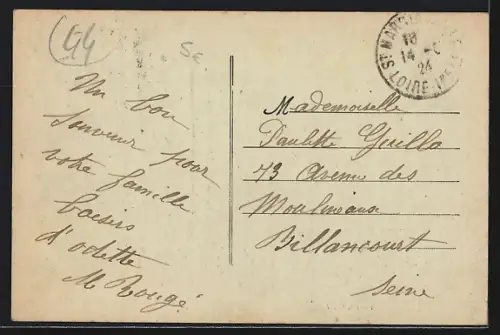 44
Se
Un bon
souvenir pour
votre famille
baisers
d'odette
M Rougé
St MAR
18
14
24
LOIRE-INF
Mademoiselle
Paulette Guillo
73 Avenue des
Moulineaux
Billancourt
Seine